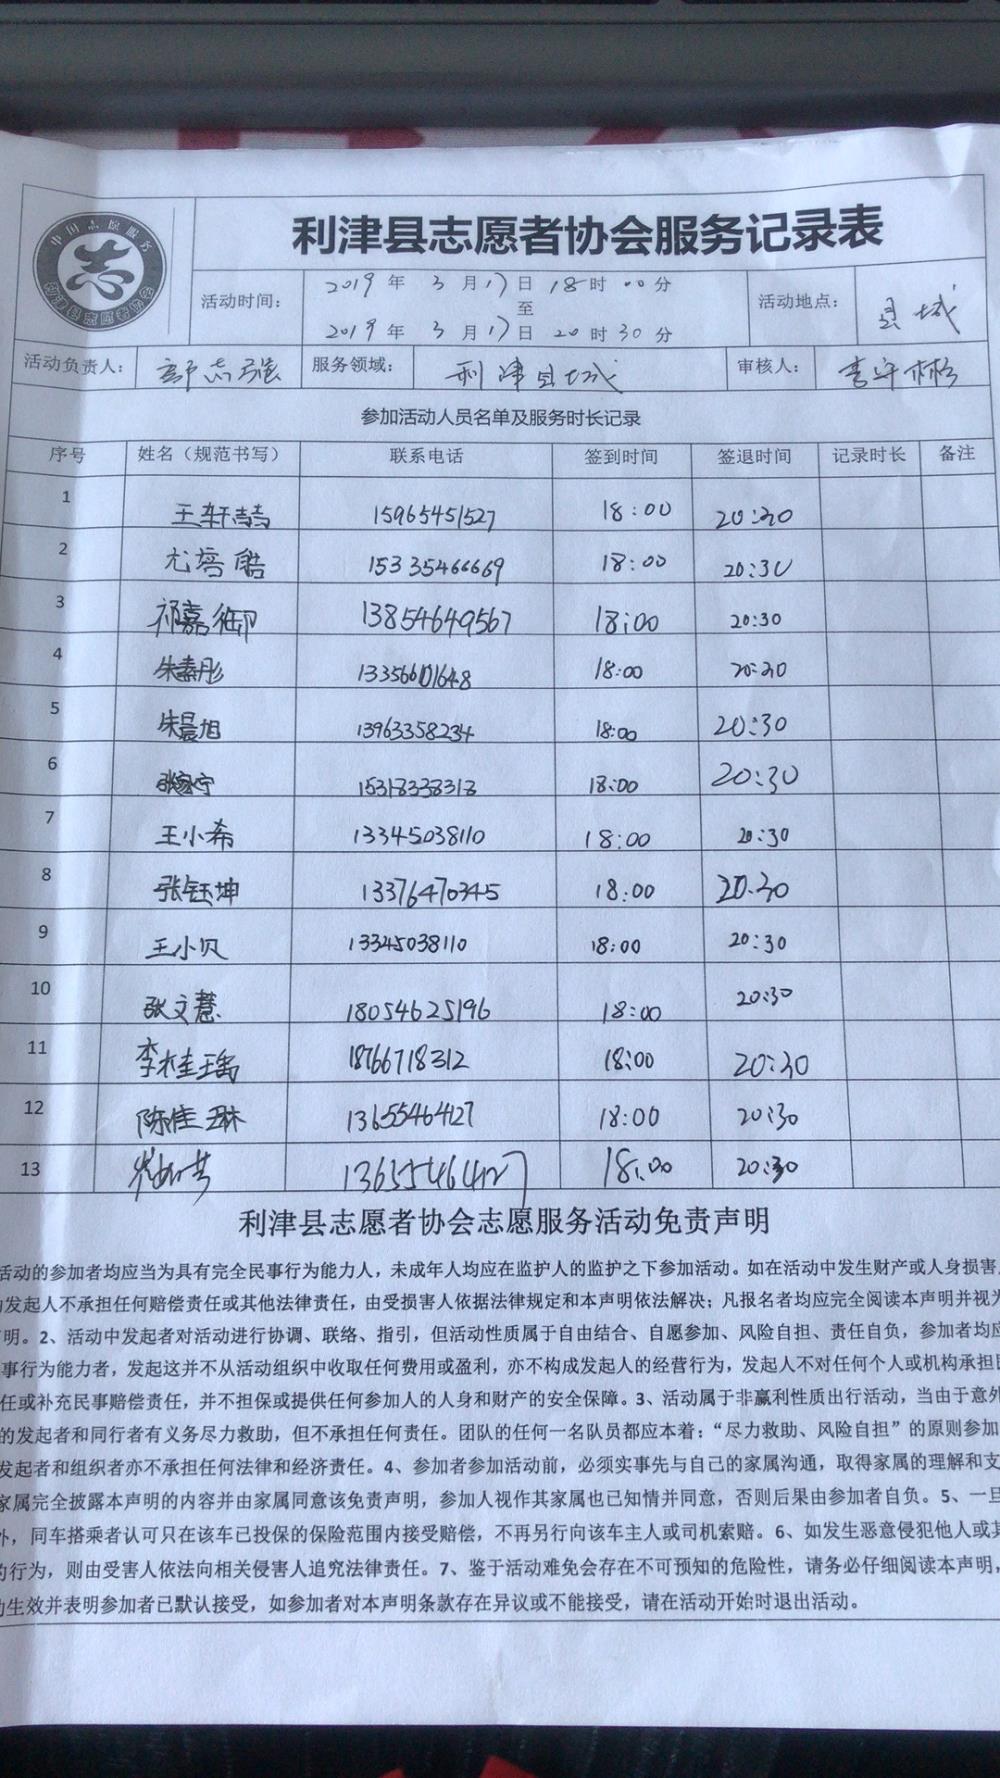 中国志愿服务
志
利津县志愿者协会
利津县志愿者协会服务记录表
活动时间：
2019年3月17日18时00分
至
2019年3月17日20时30分
活动地点： 县城
活动负责人： 志强 服务领域： 利津县城 审核人： 李守彬
参加活动人员名单及服务时长记录
序号 姓名（规范书写） 联系电话 签到时间 签退时间 记录时长 备注
1 王轩喆 15965451527 18:00 20:30
2 尤培皓 15335466669 18:00 20:30
3 祁嘉御 13854649567 18:00 20:30
4 朱彤 13356601648 18:00 20:30
5 朱晨旭 13963358234 18:00 20:30
6 张家宁 15318338318 18:00 20:30
7 王小希 13345038110 18:00 20:30
8 张钰坤 13376470345 18:00 20:30
9 王小贝 13345038110 18:00 20:30
10 张文慧 18054625196 18:00 20:30
11 李桂瑶 18766718312 18:00 20:30
12 陈佳琳 13655464127 18:00 20:30
13 13655464127 18:00 20:30
利津县志愿者协会志愿服务活动免责声明
活动的参加者均应当为具有完全民事行为能力人，未成年人均应在监护人的监护之下参加活动。如在活动中发生财产或人身损害
发起人不承担任何赔偿责任或其他法律责任，由受损害人依据法律规定和本声明依法解决；凡报名者均应完全阅读本声明并视为
明。2、活动中发起者对活动进行协调、联络、指引，但活动性质属于自由结合、自愿参加、风险自担、责任自负，参加者均应
事行为能力者，发起这并不从活动组织中收取任何费用或盈利，亦不构成发起人的经营行为，发起人不对任何个人或机构承担
任或补充民事赔偿责任，并不担保或提供任何参加人的人身和财产的安全保障。3、活动属于非赢利性质出行活动，当由于意外
的发起者和同行者有义务尽力救助，但不承担任何责任。团队的任何一名队员都应本着：“尽力救助、风险自担”的原则参加
发起者和组织者亦不承担任何法律和经济责任。4、参加者参加活动前，必须实事先与自己的家属沟通，取得家属的理解和支
家属完全披露本声明的内容并由家属同意该免责声明，参加人视作其家属也已知情并同意，否则后果由参加者自负。5、一旦
外，同车搭乘者认可只在该车已投保的保险范围内接受赔偿，不再另行向该车主人或司机索赔。6、如发生恶意侵犯他人或其
的行为，则由受害人依法向相关侵害人追究法律责任。7、鉴于活动难免会存在不可预知的危险性，请务必仔细阅读本声明，
生效并表明参加者已默认接受，如参加者对本声明条款存在异议或不能接受，请在活动开始时退出活动。